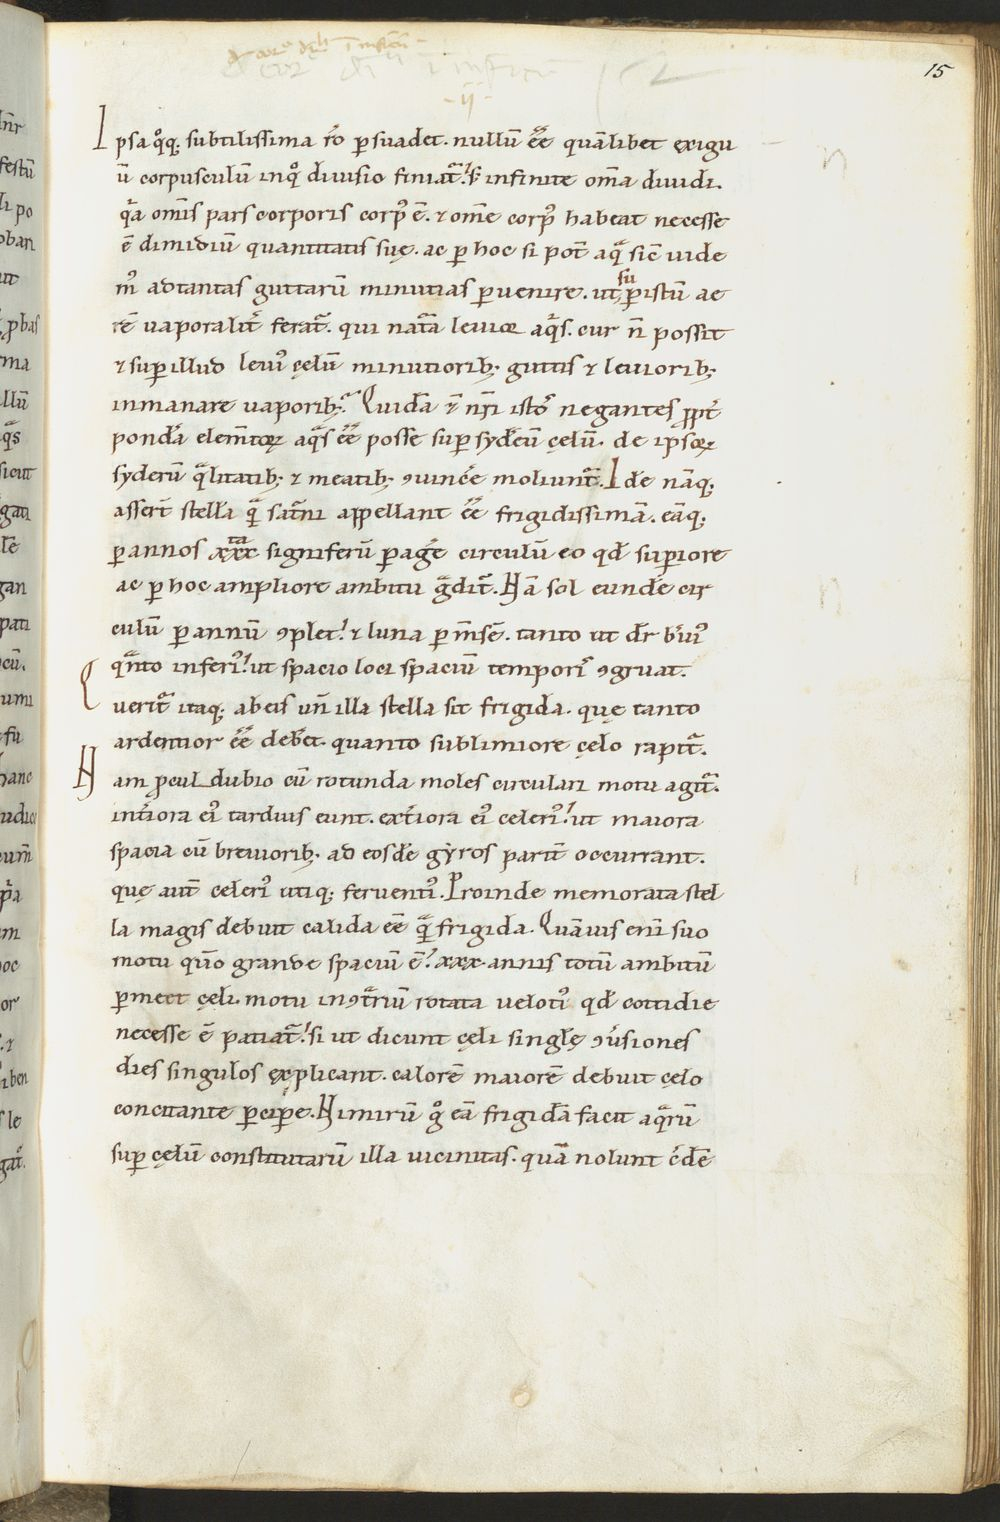 15
ıı
Ipsa qͦq; subtilissima ro̅ ꝑsuadet. nullu̅ ee̅ qua̅libet exigu
u̅ corpusculu̅ inqͦ diuisio finiat᷑. s; infinite om̅a diuidi.
qᷓa om̅is pars corporis corpꝰ e̅. ⁊ om̅e corpꝰ habeat necesse
e̅ dimidiu̅ quantitatis suę. ac ꝑ hoc si pot̅ aqᷓ sic̅ uide
mꝰ ad tantas guttaru̅ minutias ꝑuenire. ut suꝑ istu̅ ae
re̅ uaporalit᷑ ferat᷑. qui nat᷑a leuior aq̅s. cur n̅ possit
⁊ suꝑ illud leuiꝰ cęlu̅ minutiorib; guttis ⁊ leuiorib;
inmanare uaporib;. Quida̅ e̅ nr̅i istoꝰ negantes ꝓpt᷑
pond᷑a elem̅toꝝ aq̅s ee̅ posse suꝑ syd᷑eu̅ cęlu̅. de ipsoꝝ
syderu̅ qᷓlitatib; ⁊ meatib; ꝯuinc᷑e moliunt᷑. Ide̅ na̅q;
asser̅t stella̅ qᷓ̅ sat᷑ni appellant ee̅ frigidissima̅. ea̅q;
ꝑ annos xxx ta signiferu̅ ꝑag᷑e circulu̅ eo qd̅ suꝑiore
ac ꝑ hoc ampliore ambitu gᷓdit᷑. Na̅ sol eunde̅ cir
culu̅ ꝑ annu̅ ꝯplet. ⁊ luna ꝑ m̅se̅. tanto ut dr̅ b᷑uiꝰ
qᷓnto inferiꝰ. ut spacio loci spaciu̅ temporis ꝯgruat.
Querit᷑ itaq; ab eis un̅ illa stella sit frigida. quę tanto
ardentior ee̅ deb᷑et. quanto sublimiore cęlo rapit᷑.
Nam ꝓcul dubio cu̅ rotunda moles circulari motu agit᷑.
int᷑iora eiꝰ tardius eunt. ext᷑iora eiꝰ celeriꝰ. ut maiora
spacia cu̅ breuiorib; ad eosde̅ gyros parit̅ occurrant.
quę aut̅ celeriꝰ utiq; feruentiꝰ. Proinde memorata stel
la magis debuit calida ee̅ qᷓ̅ frigida. Qua̅uis eni̅ suo
motu qu̅o grande spaciu̅ e̅. xxx annis totu̅ ambitu̅
ꝑmeet cęli. motu in ꝯt᷑riu̅ rotata uelotiꝰ qd̅ cottidie
necesse e̅ patiat᷑. si ut dicunt cęli singlę ꝯu᷑siones
dies singulos explicant. calore̅ maiore̅ debuit cęlo
concitante ꝑciꝑe. Nimiru̅ gͦ ea̅ frigida̅ facit aqᷓru̅
suꝑ cęlu̅ constitutaru̅ illa uicinitas. qua̅ nolunt c᷑de̅